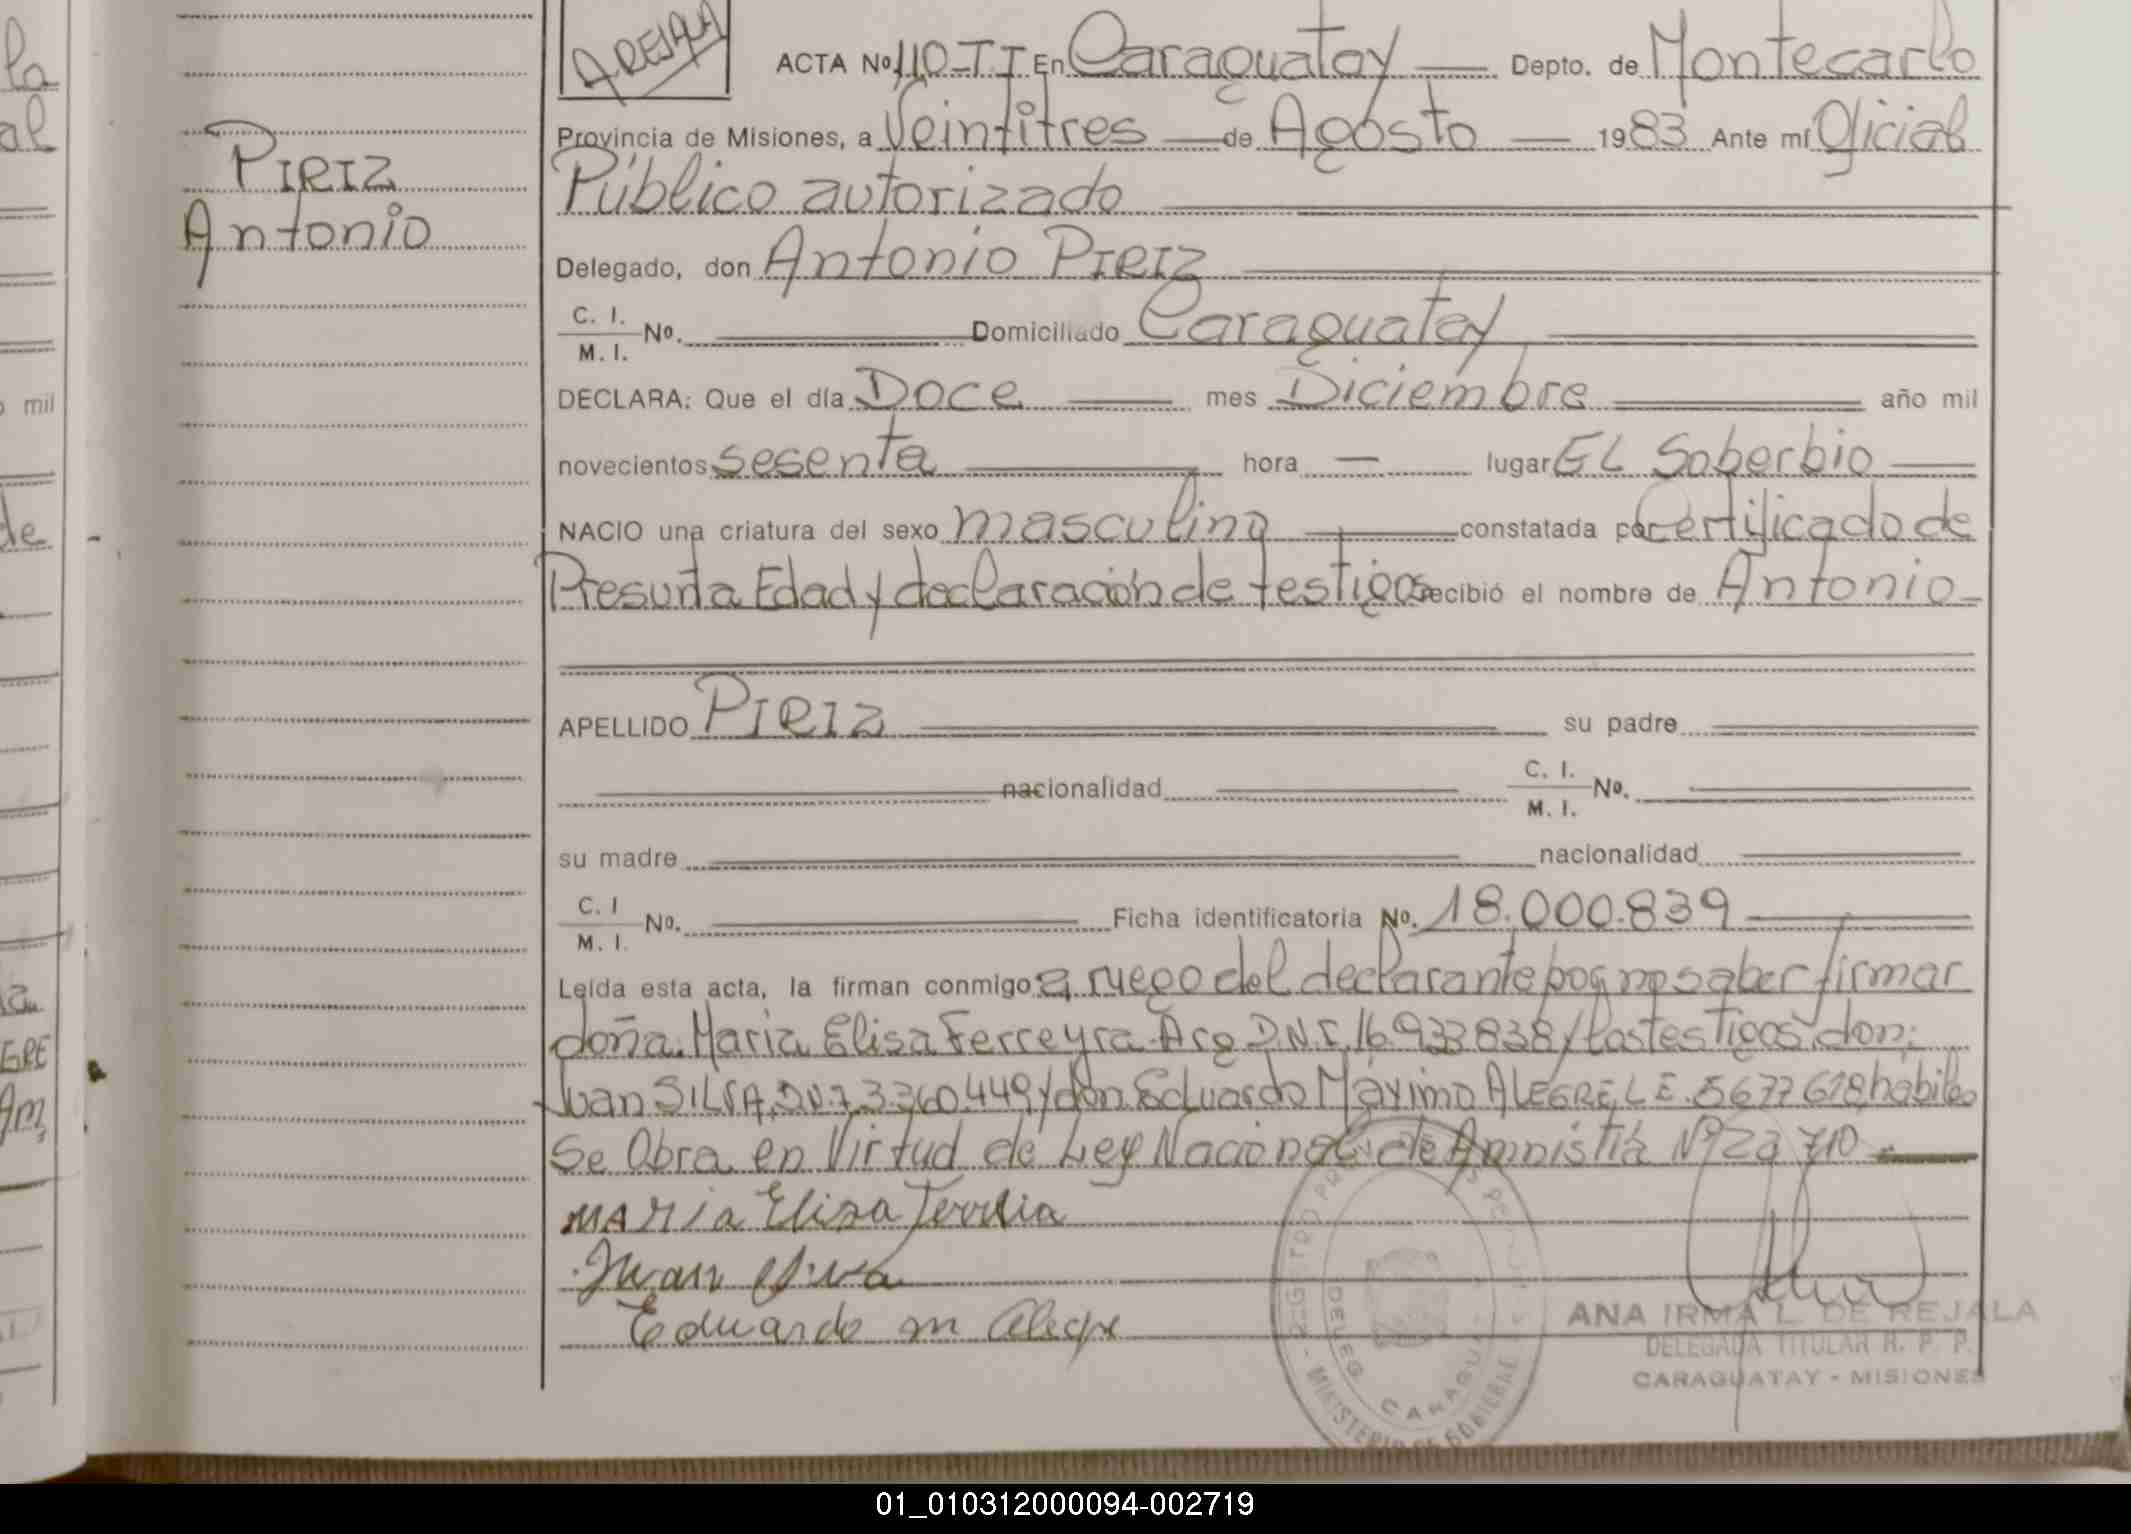 la
al
mil
de
GRE
PIRIZ
Antonio
AREJALA
ACTA Nº 110-TI En Caraguatay Depto. de Montecarlo
Provincia de Misiones, a Veintitres de Agosto 1983 Ante mí Oficial
Público autorizado
Delegado, don Antonio PIRIZ
C. I.
M. I. Nº. Domiciliado Caraguatay
DECLARA: Que el día Doce mes Diciembre año mil
novecientos sesenta hora — lugar EL Soberbio
NACIO una criatura del sexo masculino constatada por Certificado de
Presunta Edad y declaración de testigos recibió el nombre de Antonio
APELLIDO PIRIZ su padre
nacionalidad C. I.
M. I. Nº.
su madre nacionalidad
C. I
M. I. Nº. Ficha identificatoria Nº. 18.000.839
Leída esta acta, la firman conmigo a ruego del declarante por no saber firmar
doña Maria Elisa Ferreyra Arg D.N.I. 16.933838 y los testigos don:
Juan SILVA, 3.360.449 y don Eduardo Máximo ALEGRE, L E. 5677618 habiles
Se Obra en Virtud de Ley Nacional de Amnistia Nº 710
MARIA Elisa
Juan Silva
Eduardo m Alegre
DELEG. CARAGUATAY
MINISTERIO DE GOBIERNO
ANA IRMA L. DE REJALA
DELEGADA TITULAR R. P. P.
CARAGUATAY - MISIONES
01_010312000094-002719